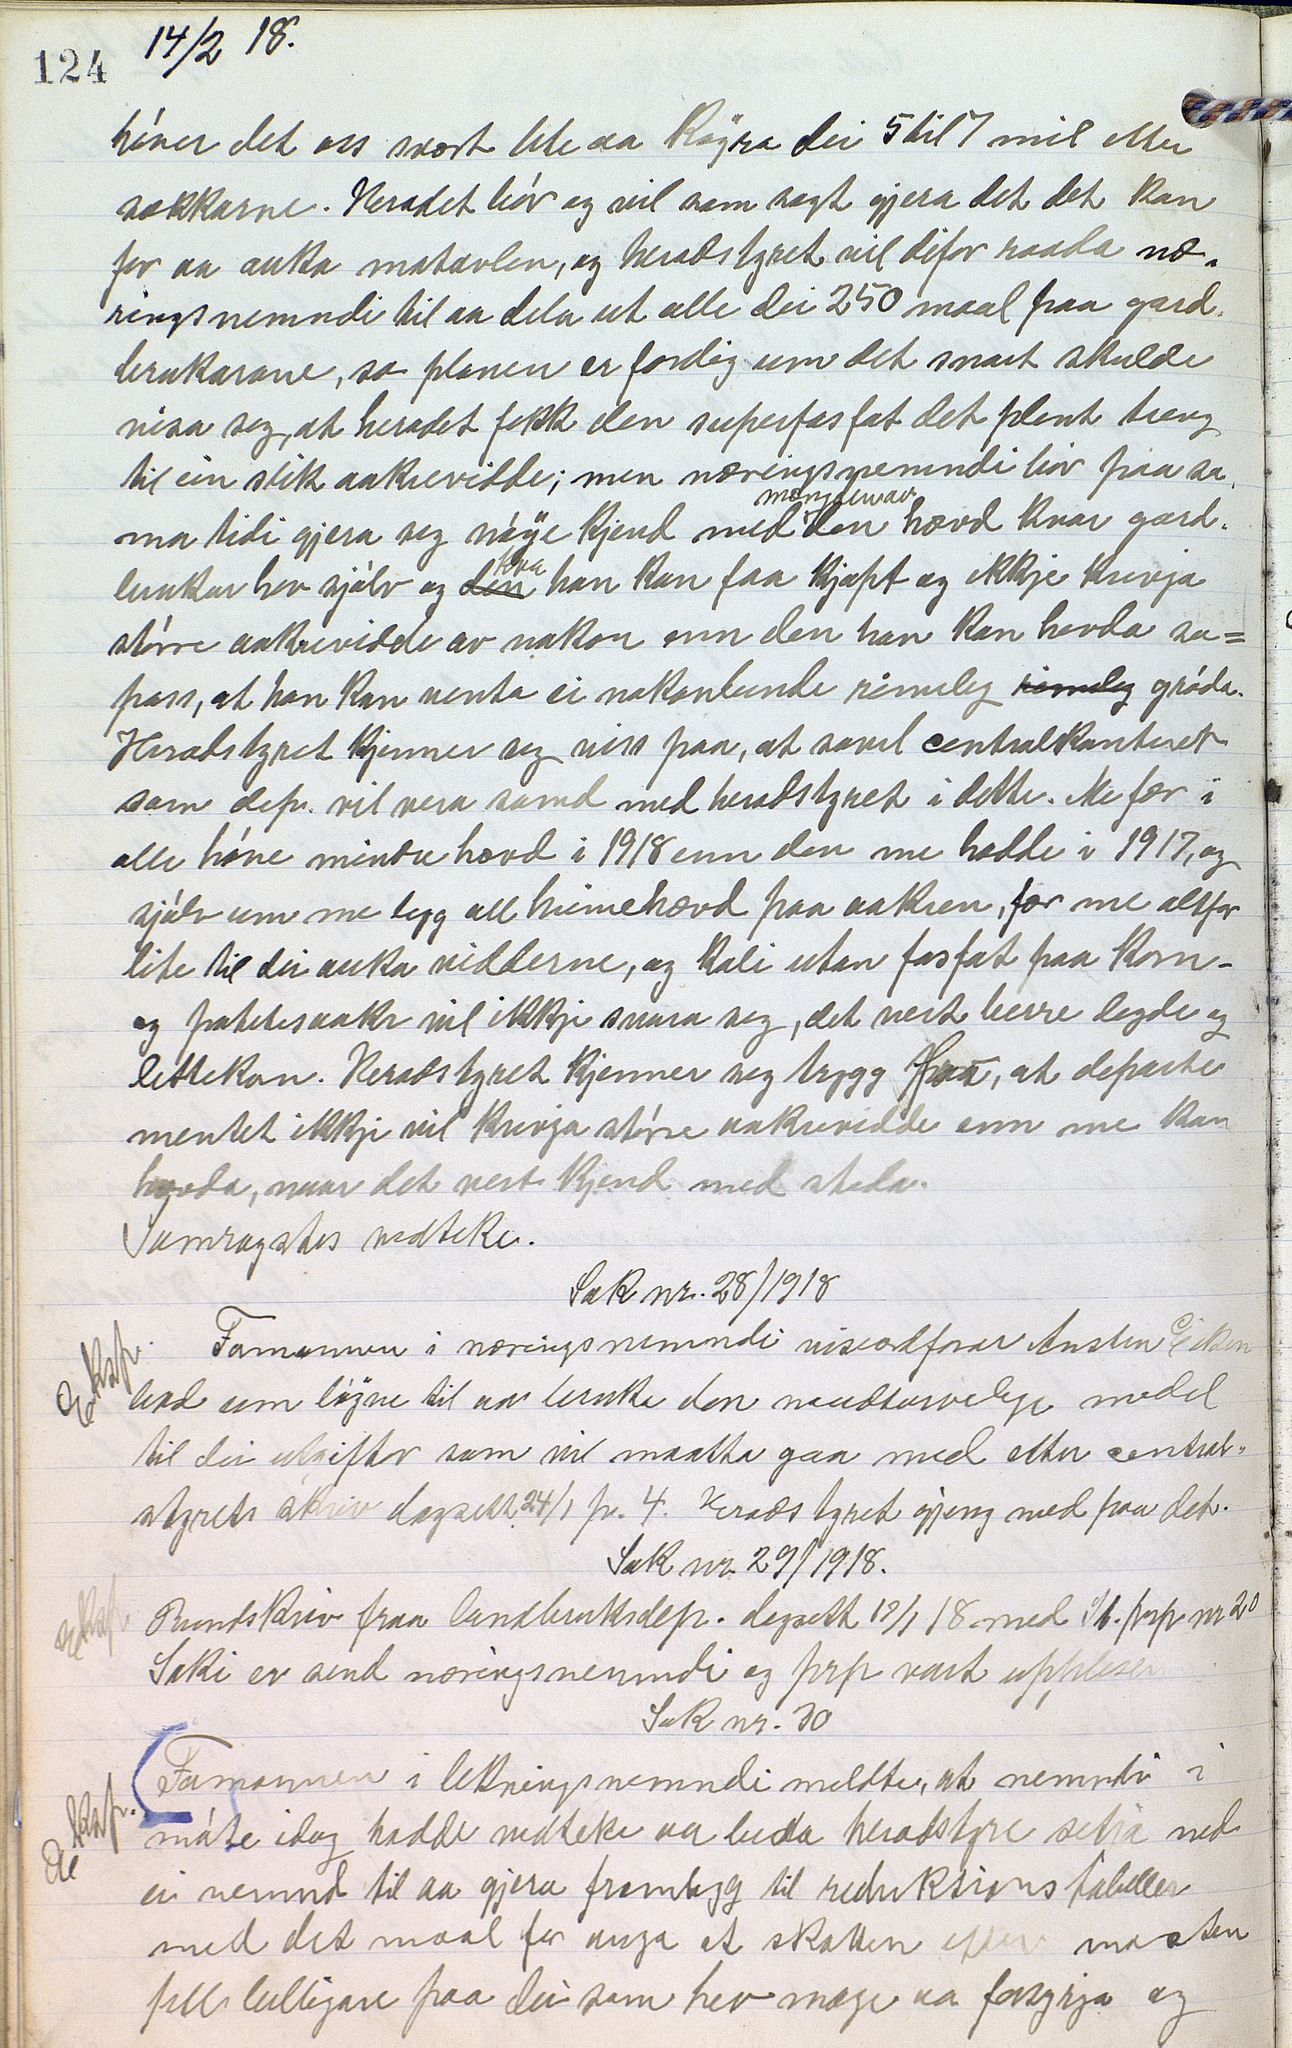 124
14/2 18.
høver det oss svært lite aa køyra dei 5 til 7 mil etter
sækkarne. Heradet bør og vil som sagt gjera det det kan
for aa auka matavlen, og heradstyret vil difor raada næ-
ringsnemndi til aa dela ut alle dei 250 maal paa gard-
brukarane, so planen er ferdig um det snart skulde
visa seg, at heradet fekk den superfosfat det plent treng
til ein slik aakrevidde; men næringsnemndi bør paa sa-
mengdi av
ma tidi gjera seg nøye kjend med den hævd kvar gard-
kva
brukar hev sjølv og den han kan faa kjøpt og ikkje krevja
større aakrevidde av nokon enn den han kan hevda so-
pass, at han kan venta ei nokonlunde rimeleg rimeleg grøda.
Heradstyret kjenner seg viss paa, at sovel centralkontoret
som dep. vil vera samd med heradstyret i dette. Me fær i
alle høve mindre hævd i 1918 enn den me hadde i 1917, og
sjølv um me legg all heimehævd paa aakren, fær me altfor
lite til dei auka vidderne, og kali utan fosfat paa korn-
og potetesaakr vil ikkje svara seg, det vert berre legde og
lettekorn. Heradstyret kjenner seg trygg paa, at departe
mentet ikkje vil krevja større aakrevidde enn me kan
hevda, naar det vert kjend med stoda.
Samrøystes vedteke.
Sak nr. 28/1918
Eksp.
Formannen i næringsnemndi viseordførar Austen
bad um løyve til aa bruka den naudturvelege medel
til dei utgifter som vil maatta gaa med etter central-
styrets skriv dagsett 24/1 p. 4. Heradstyret gjeng med paa det.
Sak nr. 29/1918.
Eksp.
Rundskriv fraa landbruksdep. dagsett 18/1 18 med St. prp nr 20
Saki er send næringsnemndi og prp vart upplesen
Sak nr. 30
Eksp.
Formannen i likningsnemndi meldte, at nemndi i
møte idag hadde vedteke aa beda heradstyre setja ned
ei nemnd til aa gjera framlegg til reduksions tabeller
med det maal for auga at skatten etter maaten
fell billigare paa dei som hev mage aa forsyrgja og